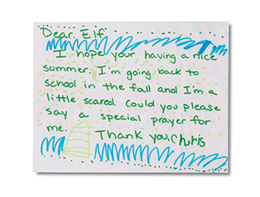 Dear Elf
I hope your having a nice
summer. I'm going back to
school in the fall and I'm a
little scared. Could you please
say a special prayer for
me. Thank you, Chris